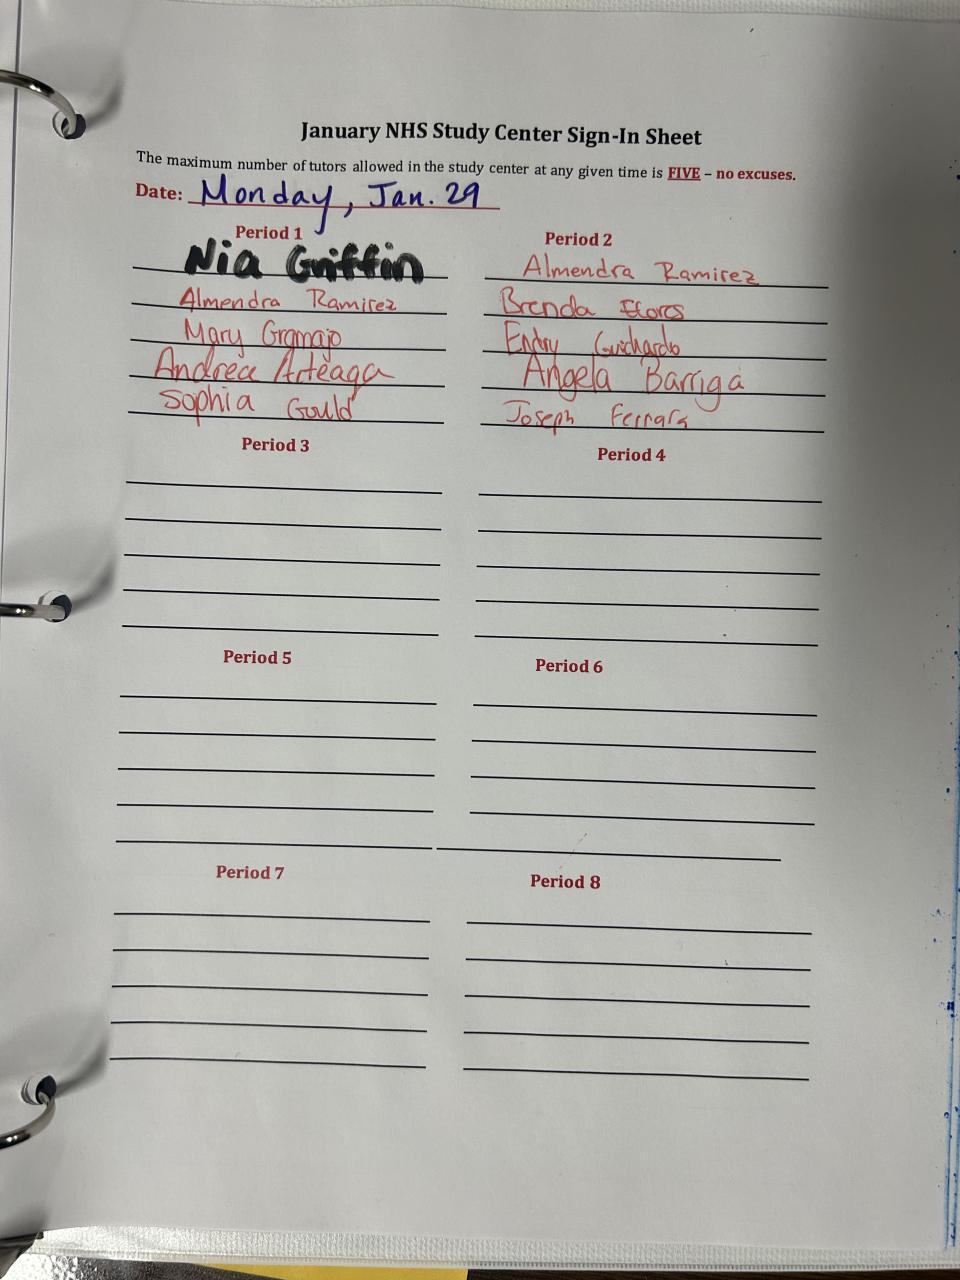 January NHS Study Center Sign-In Sheet
The maximum number of tutors allowed in the study center at any given time is FIVE – no excuses.
Date: Monday, Jan. 29
Period 1
Nia Griffin
Almendra Ramirez
Mary Gramajo
Andrea Arteaga
Sophia Gould
Period 2
Almendra Ramirez
Brenda
Endry Guichardo
Angela Barriga
Joseph Ferrara
Period 3
Period 4
Period 5
Period 6
Period 7
Period 8